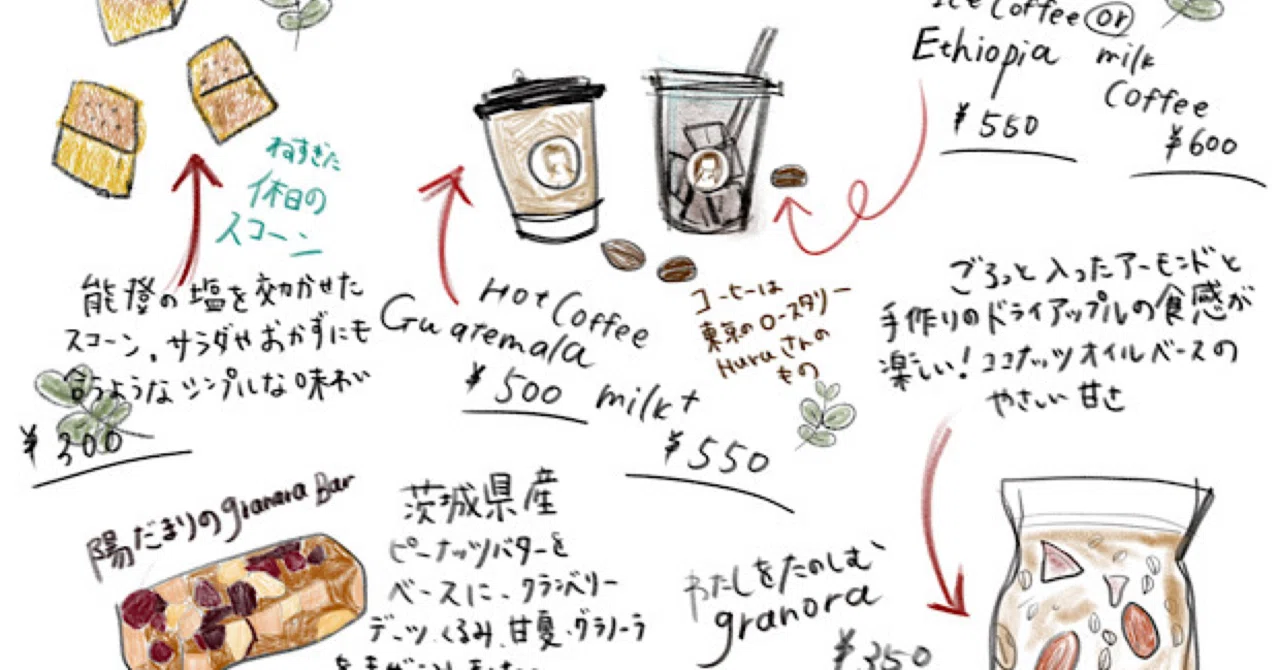 ねすぎた
休日の
スコーン
能登の塩を効かせた
スコーン。サラダやおかずにも
合うようなシンプルな味わい
¥300
Hot Coffee
Guatemala
¥500 milk+
¥550
コーヒーは
東京のロースタリー
Huruさんの
もの
Ice Coffee or
Ethiopia milk
Coffee
¥550
¥600
ごろっと入ったアーモンドと
手作りのドライアップルの食感が
楽しい!ココナッツオイルベースの
やさしい甘さ
陽だまりのgranora Bar
茨城県産
ピーナッツバターを
ベースに、クランベリー
デーツ、くるみ、甘夏、グラノーラ
わたしをたのしむ
granora
¥350